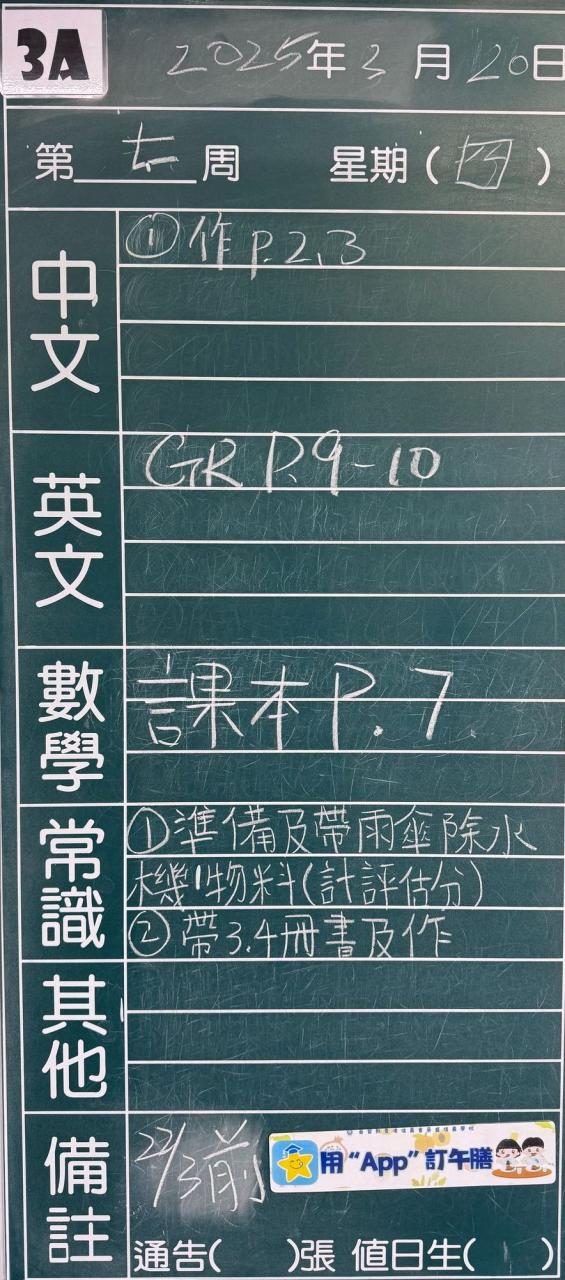 3A
2025年3月20日
第 周 星期(四)
中文
①作P.2,3
英文
GR P.9-10
數學
課本P.7
常識
①準備及帶雨傘除水
機物料(計評估分)
②帶3.4冊書及作
其他
備註
22/3前
用“App”訂午膳
通告( )張 值日生( )